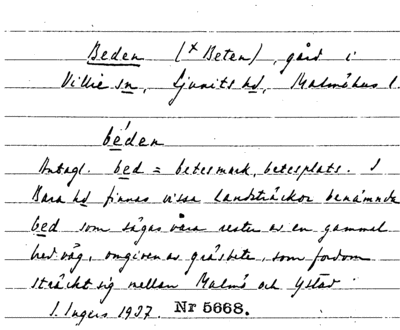 Beden (+ Beten), gård i
Villie sn, Ljunits hd, Malmöhus l.
béden
Antagl. bed = betesmark, betesplats. I
Bara hd finnas vissa landsträckor benämnda
bed som sägas vara rester av en gammal
bred väg, omgiven av gräsbete, som fordom
sträckt sig mellan Malmö och Ystad.
S. Ingers 1937. Nr 5668.